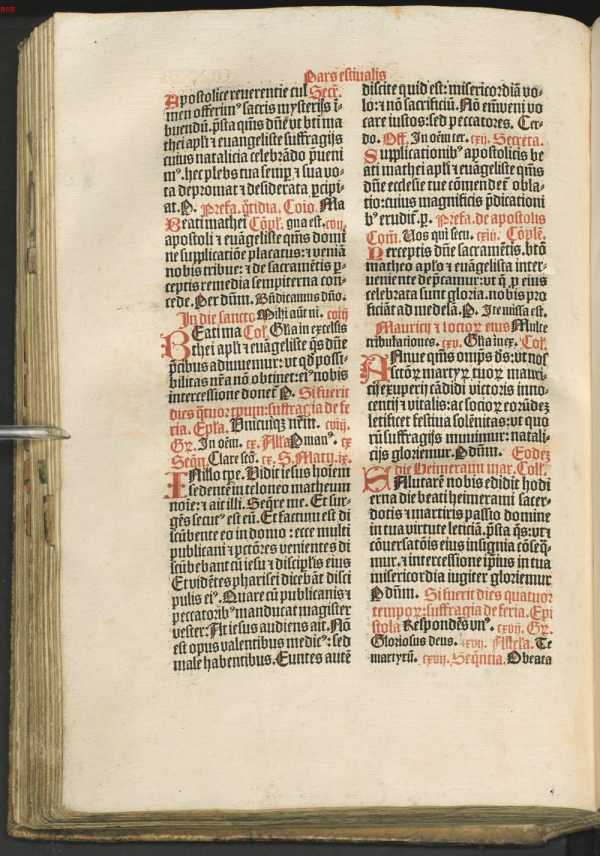 Pars estiualis
Apostolice reuerentie cul Secr̃.
men offerim⁹ sacris mysterijs ī-
buendū. p̄sta q̄ms dn̄e vt bt̄i ma
thei apl̓i ⁊ euangeliste suffragijs
cuius natalicia celebrādo p̄ueni
m⁹. hec plebs tua semꝑ ⁊ sua vo-
ta depromat ⁊ desiderata ꝑcipi-
at. P. Prefa. q̄tidia. Coīo. Ma
Beati mathei Cōpl̓. gna est. cvij.
apostoli ⁊ euāgeliste q̄ms domī
ne supplicatiōe placatus: ⁊ veniā
nobis tribue: ⁊ de sacramētis ꝑ-
ceptis remedia sempiterna con-
cede. Per dn̄m. Bn̄dicamus dn̄o.
In die sancto Mihi aūt ni. cviij
BEati ma Col̓. Glīa in excelsis
thei apl̓i ⁊ euāgeliste q̄s dn̄e
p̄cibus adiuuemur: vt qd̓ possi-
bilitas nr̄a nō obtinet: ei⁹ nobis
intercessione donet̃ P. Si fuerit
dies q̄tuor tpum: suffragia de fe
ria. Epl̓a. Unicuiqꝫ nr̄m. cviij.
Gr̃. In oēm. cx. All̓a Nman⁹. cx
Seq̄n̄. Clare sctō. cx. S. Matt. ix.
IN illo tꝑe. Vidit iesus hoīem
sedentē in teloneo matheum
noīe: ⁊ ait illi. Seq̄re me. Et sur-
gēs secut⁹ est eū. Et factum est di
scūbente eo in domo: ecce multi
publicani ⁊ pctōres venientes di
scūbebant cū iesu ⁊ discipl̓is eius
Et vidētes pharisei dicebāt disci
pulis ei⁹. Quare cū publicanis ⁊
peccatorib⁹ manducat magister
vester: At iesus audiens ait. Nō
est opus valentibus medic⁹: sed
male habentibus. Euntes autē
discite quid est: misericordiā vo-
lo: ⁊ nō sacrificiū. Nō em̄ veni vo
care iustos: sed peccatores. Cre-
do. Off. In oēm ter. cxij. Secreta.
Supplicationib⁹ apostolicis be
ati mathei apl̓i ⁊ euāgeliste q̄ms
dn̄e ecclesie tue cōmendet̃ obla-
tio: cuius magnificis p̄dicationi
b⁹ erudit̃. P. Prefa. de apostolis
Com̄. Uos qui secu. cxiij. Cōplē.
Perceptis dn̄e sacramētis. btō
matheo apl̓o ⁊ euāgelista inter-
ueniente dep̄camur: vt q̄ ꝓ eius
celebrata sunt gloria. nobis pro
ficiāt ad medelā. P. Ite missa est.
Mauricij ⁊ socioꝝ eius Multe
tribulationes. cxv. Glīa in ex. Col̓.
ANnue q̄ms omp̄s ds̄: vt nos
sctōꝝ martyꝝ tuoꝝ mauri-
cij exuperij cādidi victoris inno-
centij ⁊ vitalis: ac socioꝝ eorūdeꝫ
letificet festiua solēnitas: vt quo
rū suffragijs innitimur: natali-
cijs gloriemur. P dn̄m. Eodeꝫ
die Heimerami mar. Coll̓.
SAlutarē nobis edidit hodi
erna die beati heimerami sacer-
dotis ⁊ martiris passio domine
in tua virtute leticiā. p̄sta q̄s: vt ⁊
cōuersatōis eius insignia cōseq̄-
mur. ⁊ intercessione ip̄ius in tua
misericordia iugiter gloriemur
P dn̄m. Si fuerit dies quatuor
tempoꝝ: suffragia de feria. Epi
stola Respondēs vn⁹. cxvij. Gr̃.
Gloriosus deus. cxvij. All̓ela. Te
martyrū. cxvij. Seq̄ntia. O beata